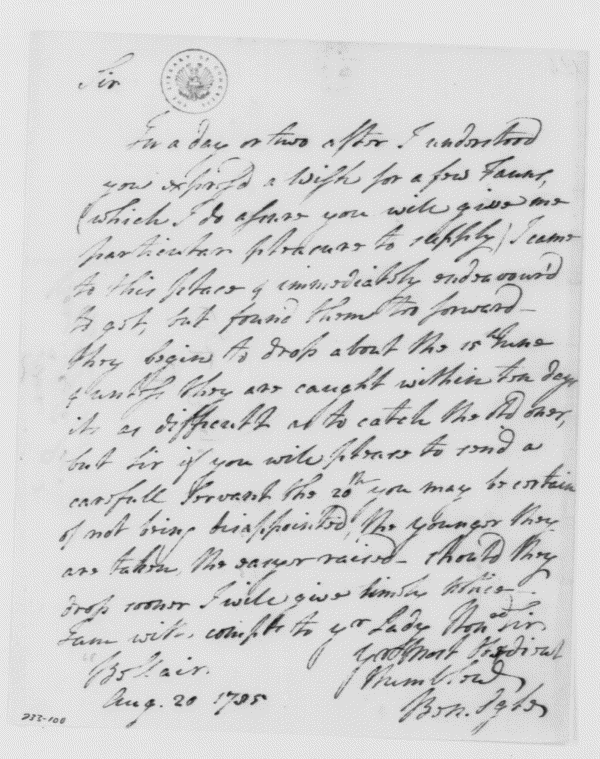 Sir
THE LIBRARY OF CONGRESS
For a day or two after I understood
you express'd a wish for a few Fauns,
(which I do assure you will give me
particular pleasure to supply) I came
to this place & immediately endeavour'd
to get, but found them too forward —
they begin to drop about the 15th June
& unless they are caught within ten days
its as difficult as to catch the old ones,
but Sir if you will please to send a
carefull Servant the 20th you may be certain
of not being disappointed, the younger they
are taken, the easyer raised — should they
drop sooner I will give timely notice —
I am with complts to yr Lady Hond Sir.
yr Most Obedient
Humb
Bellair.
Aug. 20 1785
Ben. Ogle
232-100